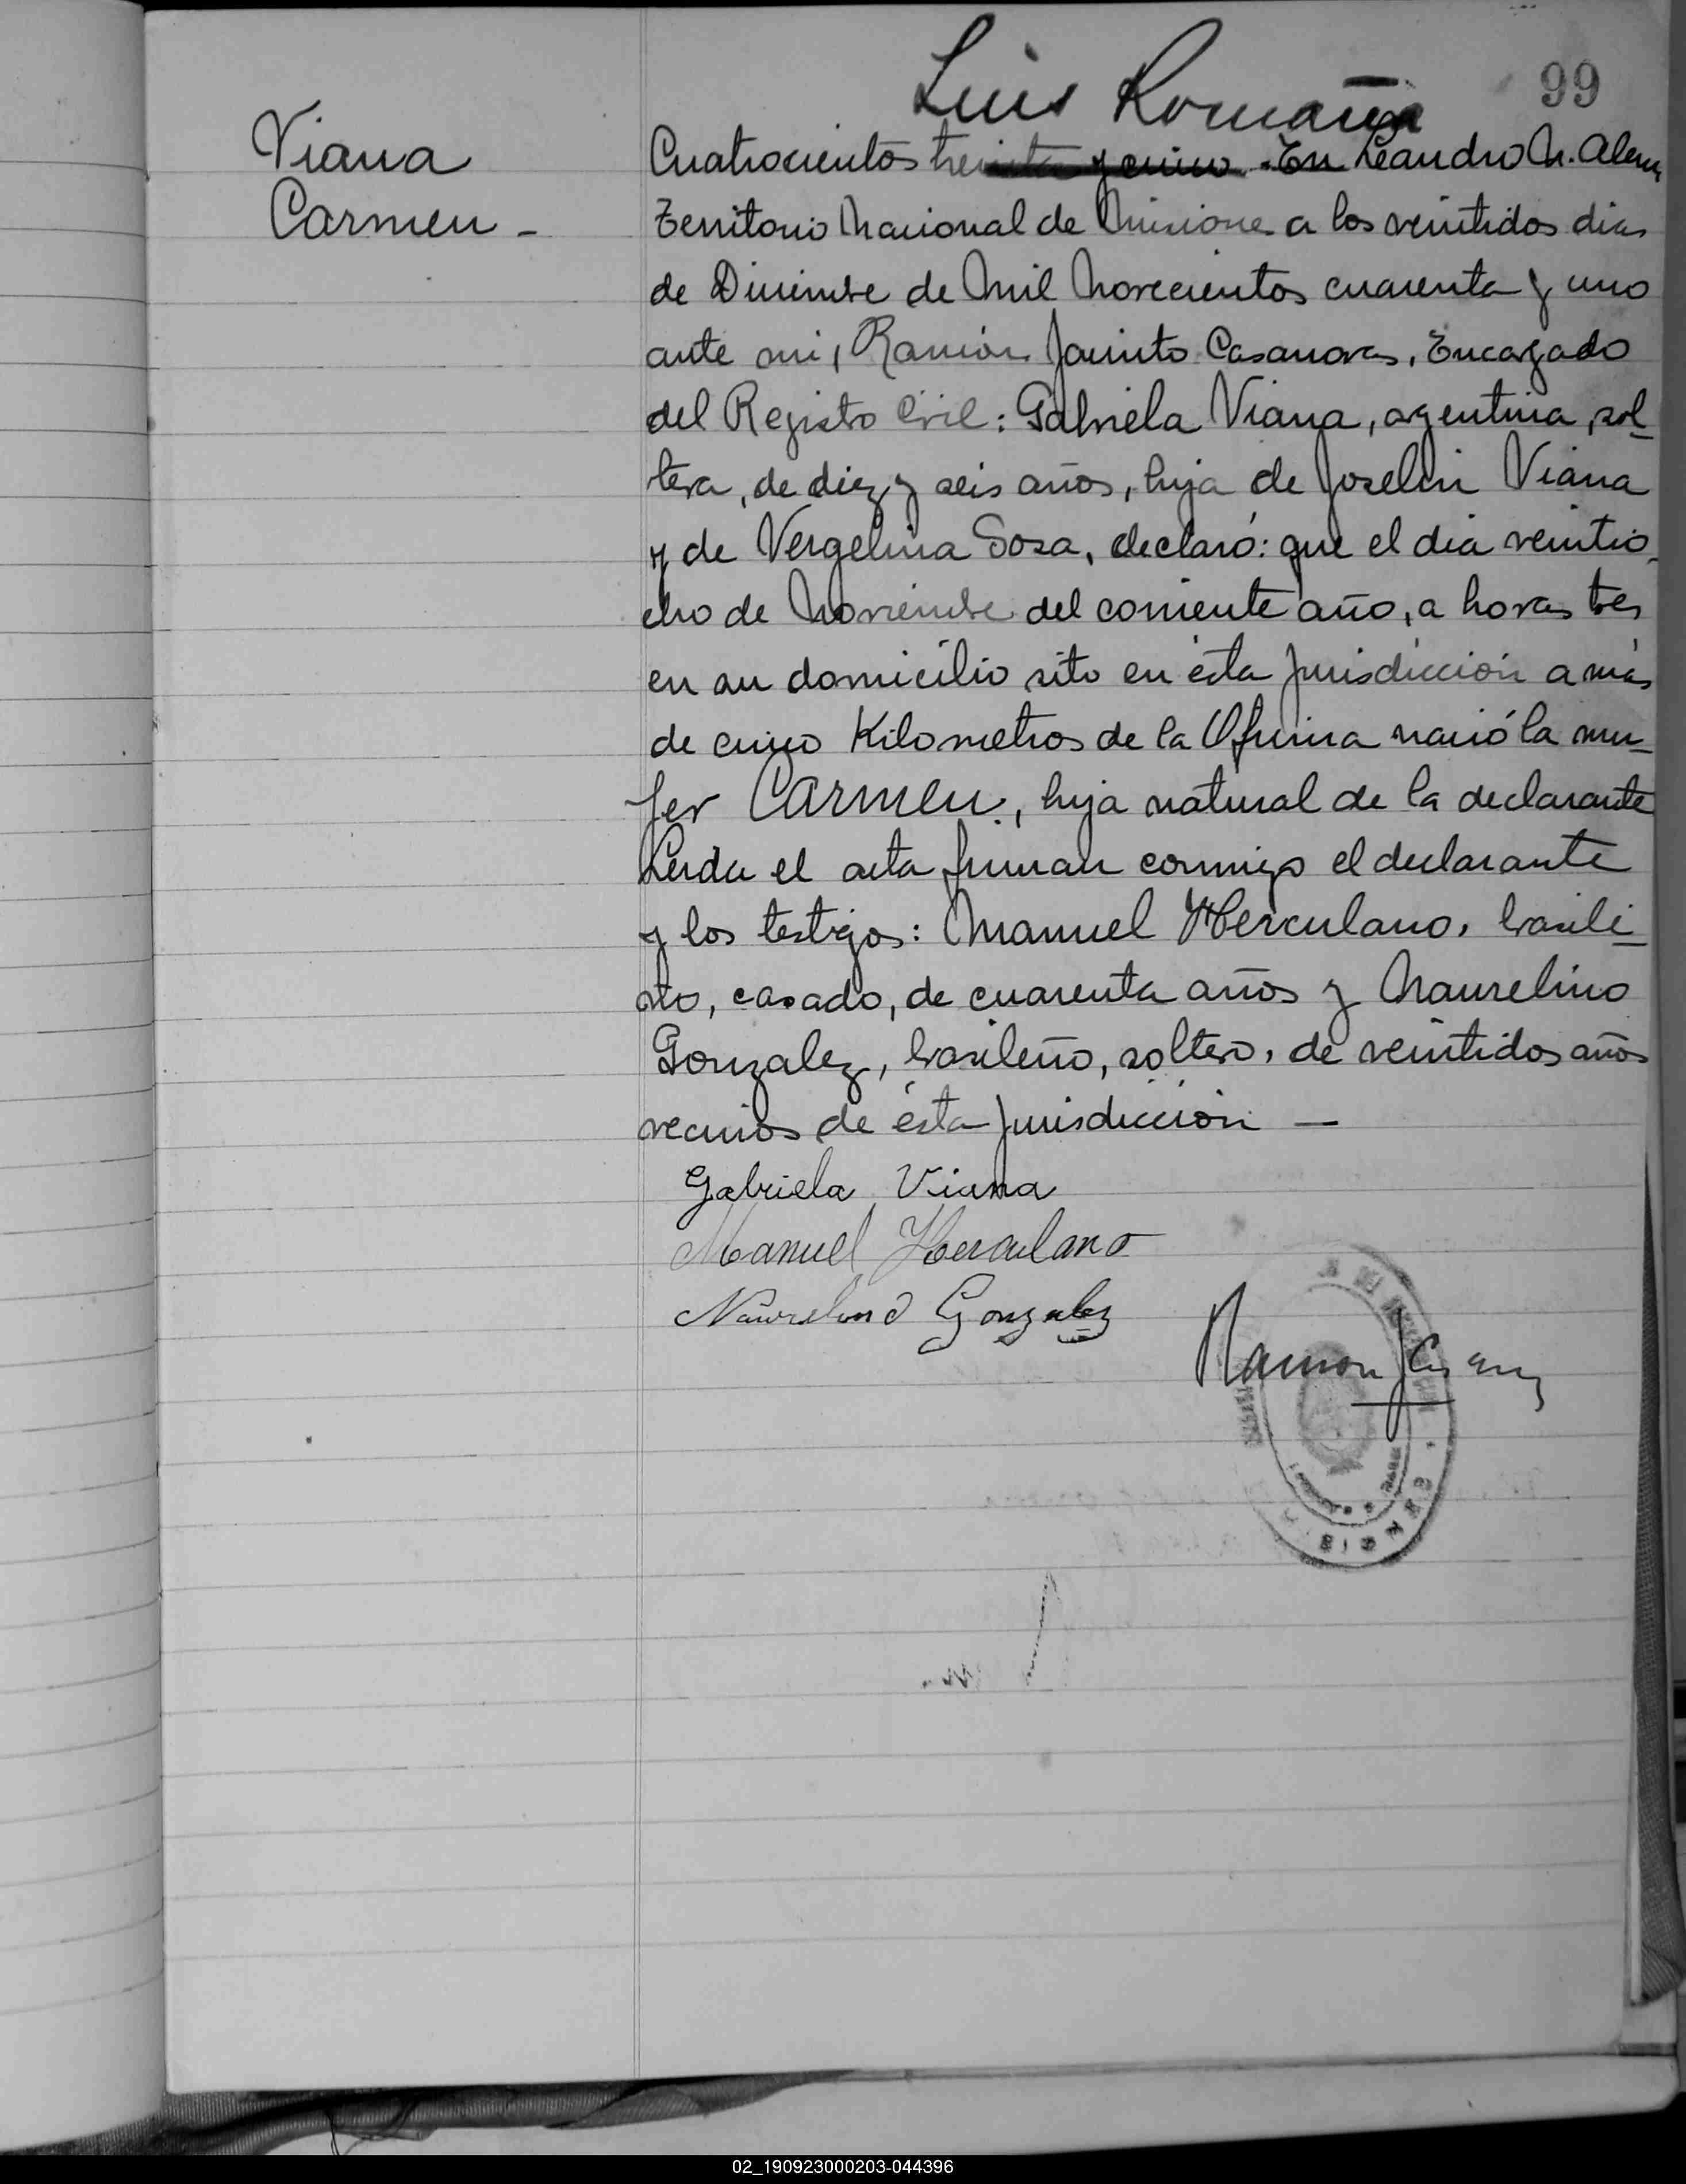 Luis Romaña
99
Viana
Carmen -
Cuatrocientos treinta y cinco - En Leandro N. Alem,
Territorio Nacional de Misiones a los veintidos dias
de Diciembre de Mil Novecientos cuarenta y uno
ante mi, Ramón Jacinto Casanovas, Encargado
del Registro Civil: Gabriela Viana, argentina, sol-
tera, de diez y seis años, hija de Joselin Viana
y de Vergelina Sosa, declaró: que el dia veintio-
cho de Noviembre del corriente año, a horas tres
en su domicilio sito en ésta Jurisdicción a más
de cinco Kilometros de la Oficina nació la mu-
jer Carmen, hija natural de la declarante
Leida el acta firman conmigo el declarante
y los testigos: Manuel Herculano, brasile-
ño, casado, de cuarenta años y Naurelino
Gonzalez, brasileño, soltero, de veintidos años
vecinos de ésta Jurisdicción —
Gabriela Viana
Manuel Herculano
Naurelino Gonzalez
Ramon J
02_190923000203-044396